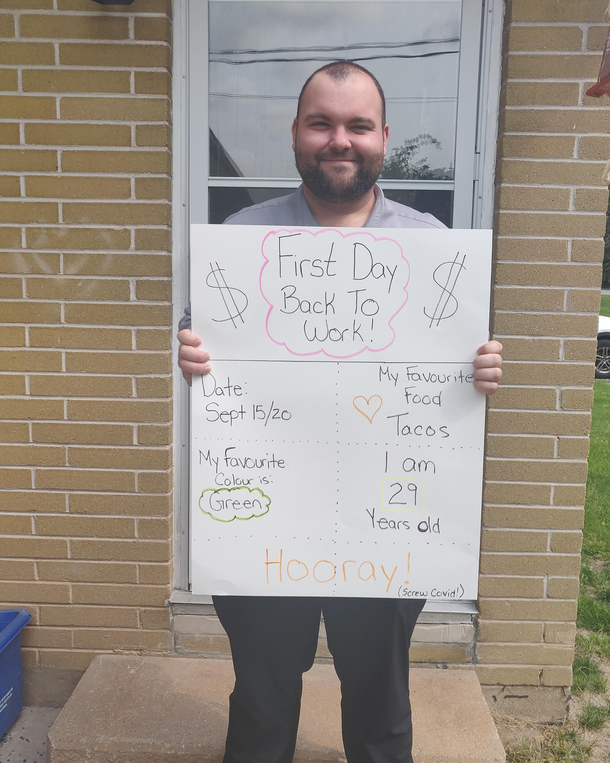 $ First Day $
Back To
Work!
Date:
Sept 15/20
My Favourite
Food
Tacos
My Favourite
Colour is:
Green
I am
29
Years old
Hooray!
(Screw Covid!)